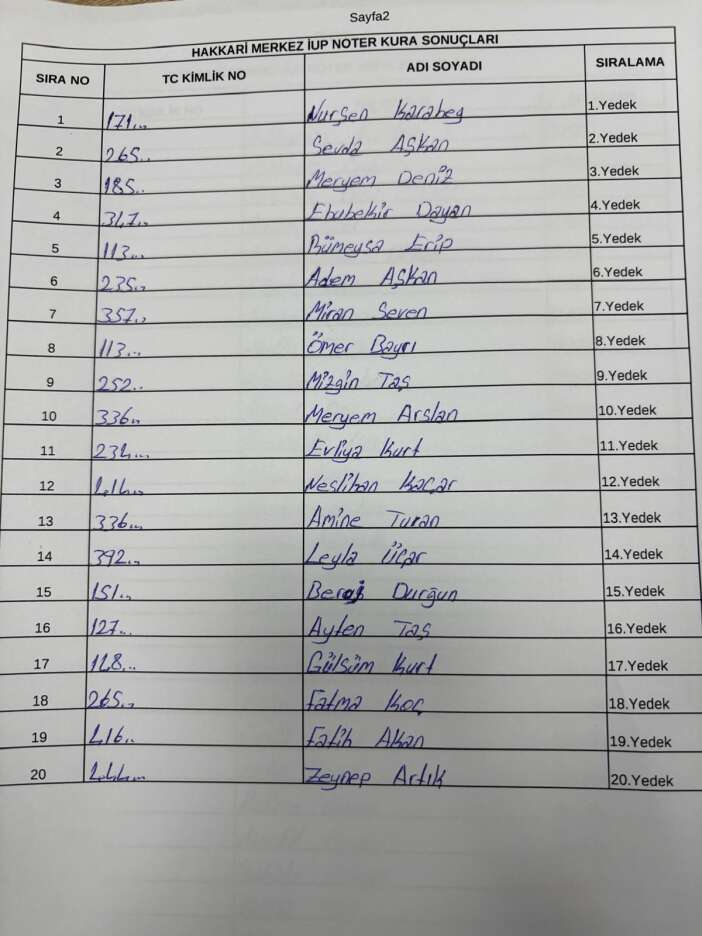 Sayfa2
HAKKARİ MERKEZ İUP NOTER KURA SONUÇLARI
SIRA NO TC KİMLİK NO ADI SOYADI SIRALAMA
1 171... Nurşen Karabeg 1.Yedek
2 265.. Sevda Aşkan 2.Yedek
3 185... Meryem Deniz 3.Yedek
4 347... Ebubekir Dayan 4.Yedek
5 113... Rümeysa Erip 5.Yedek
6 235.. Adem Aşkan 6.Yedek
7 357.. Miran Seven 7.Yedek
8 113... Ömer Bayrı 8.Yedek
9 252.. Mizgin Taş 9.Yedek
10 336.. Meryem Arslan 10.Yedek
11 Evliya Kurt 11.Yedek
12 Neslihan Kaçar 12.Yedek
13 336... Amine Turan 13.Yedek
14 392... Leyla Üçar 14.Yedek
15 151.. Durğun 15.Yedek
16 127... Ayten Taş 16.Yedek
17 Gülsüm Kurt 17.Yedek
18 265.. Fatma Koç 18.Yedek
19 Fatih Akan 19.Yedek
20 Zeynep Artık 20.Yedek